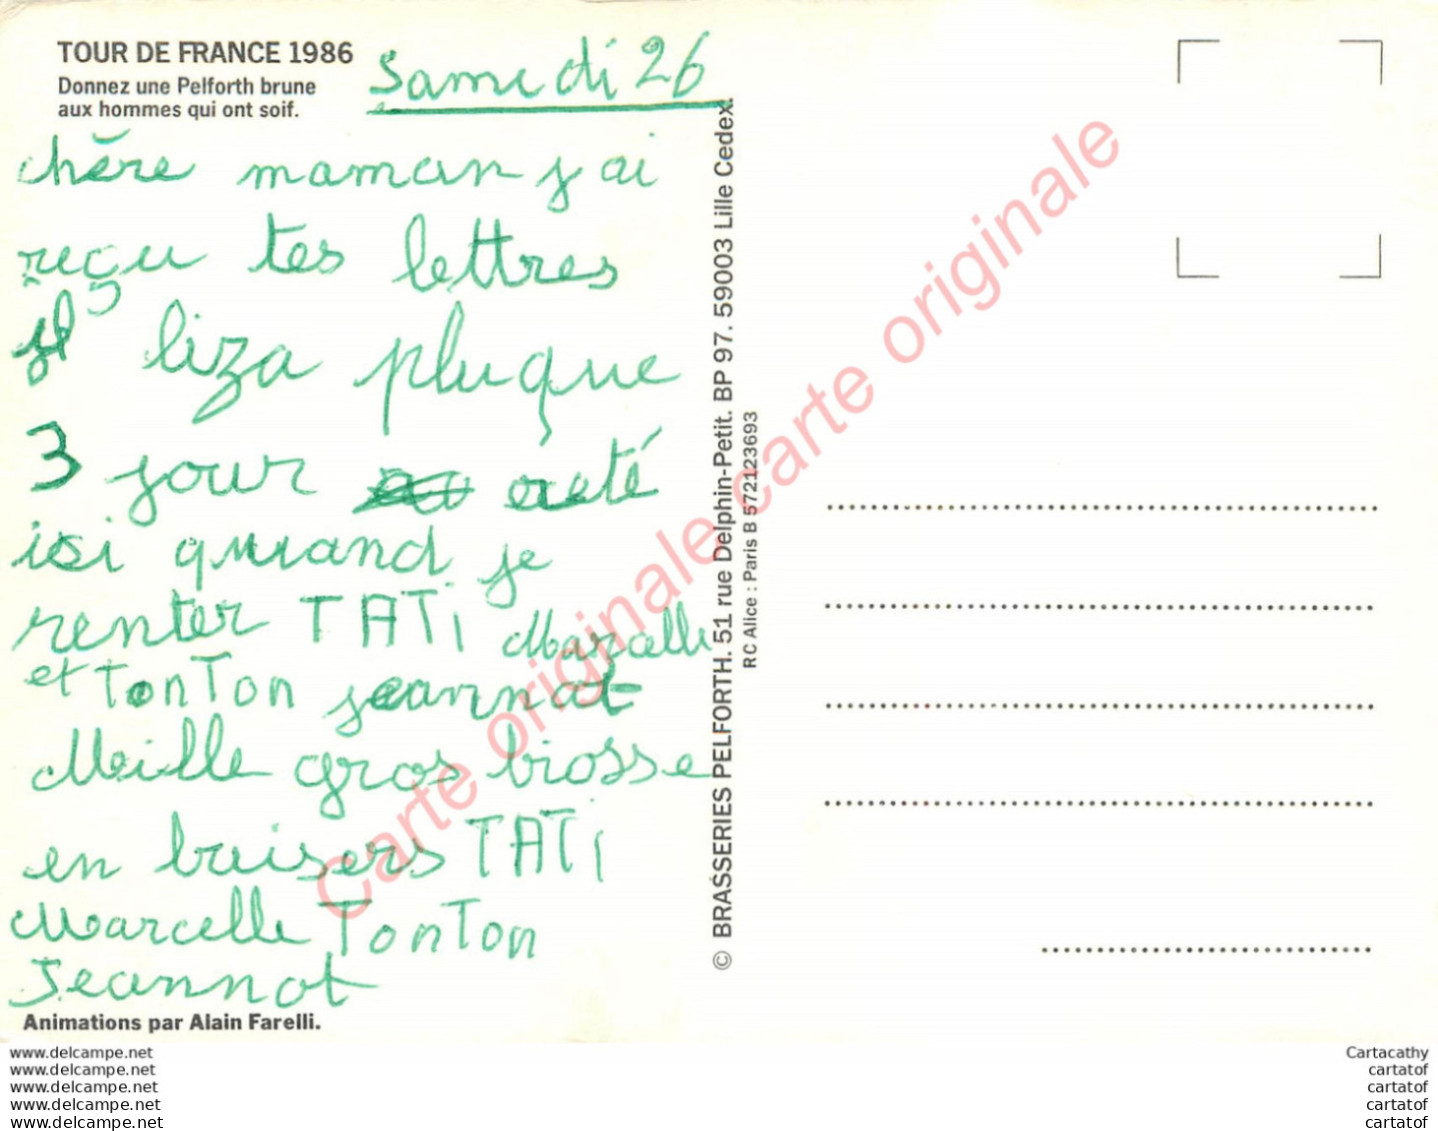 TOUR DE FRANCE 1986
Donnez une Pelforth brune
aux hommes qui ont soif.
Samedi 26
chère maman j ai
reçu tes lettres
il liza plu que
3 jour resté
isi quuand je
renter TATi Marcelle
et TonTon jeannot
Meille gros biosse
en buisers TATi
Marcelle TonTon
Jeannot
Animations par Alain Farelli.
© BRASSERIES PELFORTH. 51 rue Delphin-Petit. BP 97. 59003 Lille Cedex.
RC Alice : Paris B 572123693
Carte originale carte originale
www.delcampe.net
www.delcampe.net
www.delcampe.net
www.delcampe.net
www.delcampe.net
Cartacathy
cartatof
cartatof
cartatof
cartatof